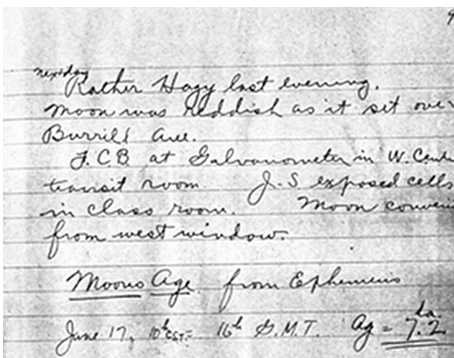 next day
Rather Hazy last evening.
Moon was reddish as it set over
Burrill Ave.
F.C.B at Galvanometer in W. Cent
transit room. J.S exposed cells
in class room. Moon conveni
from west window.
Moons Age from Ephemeris
June 17, 10h EST. 16h G.M.T. Ag = 7.2 da